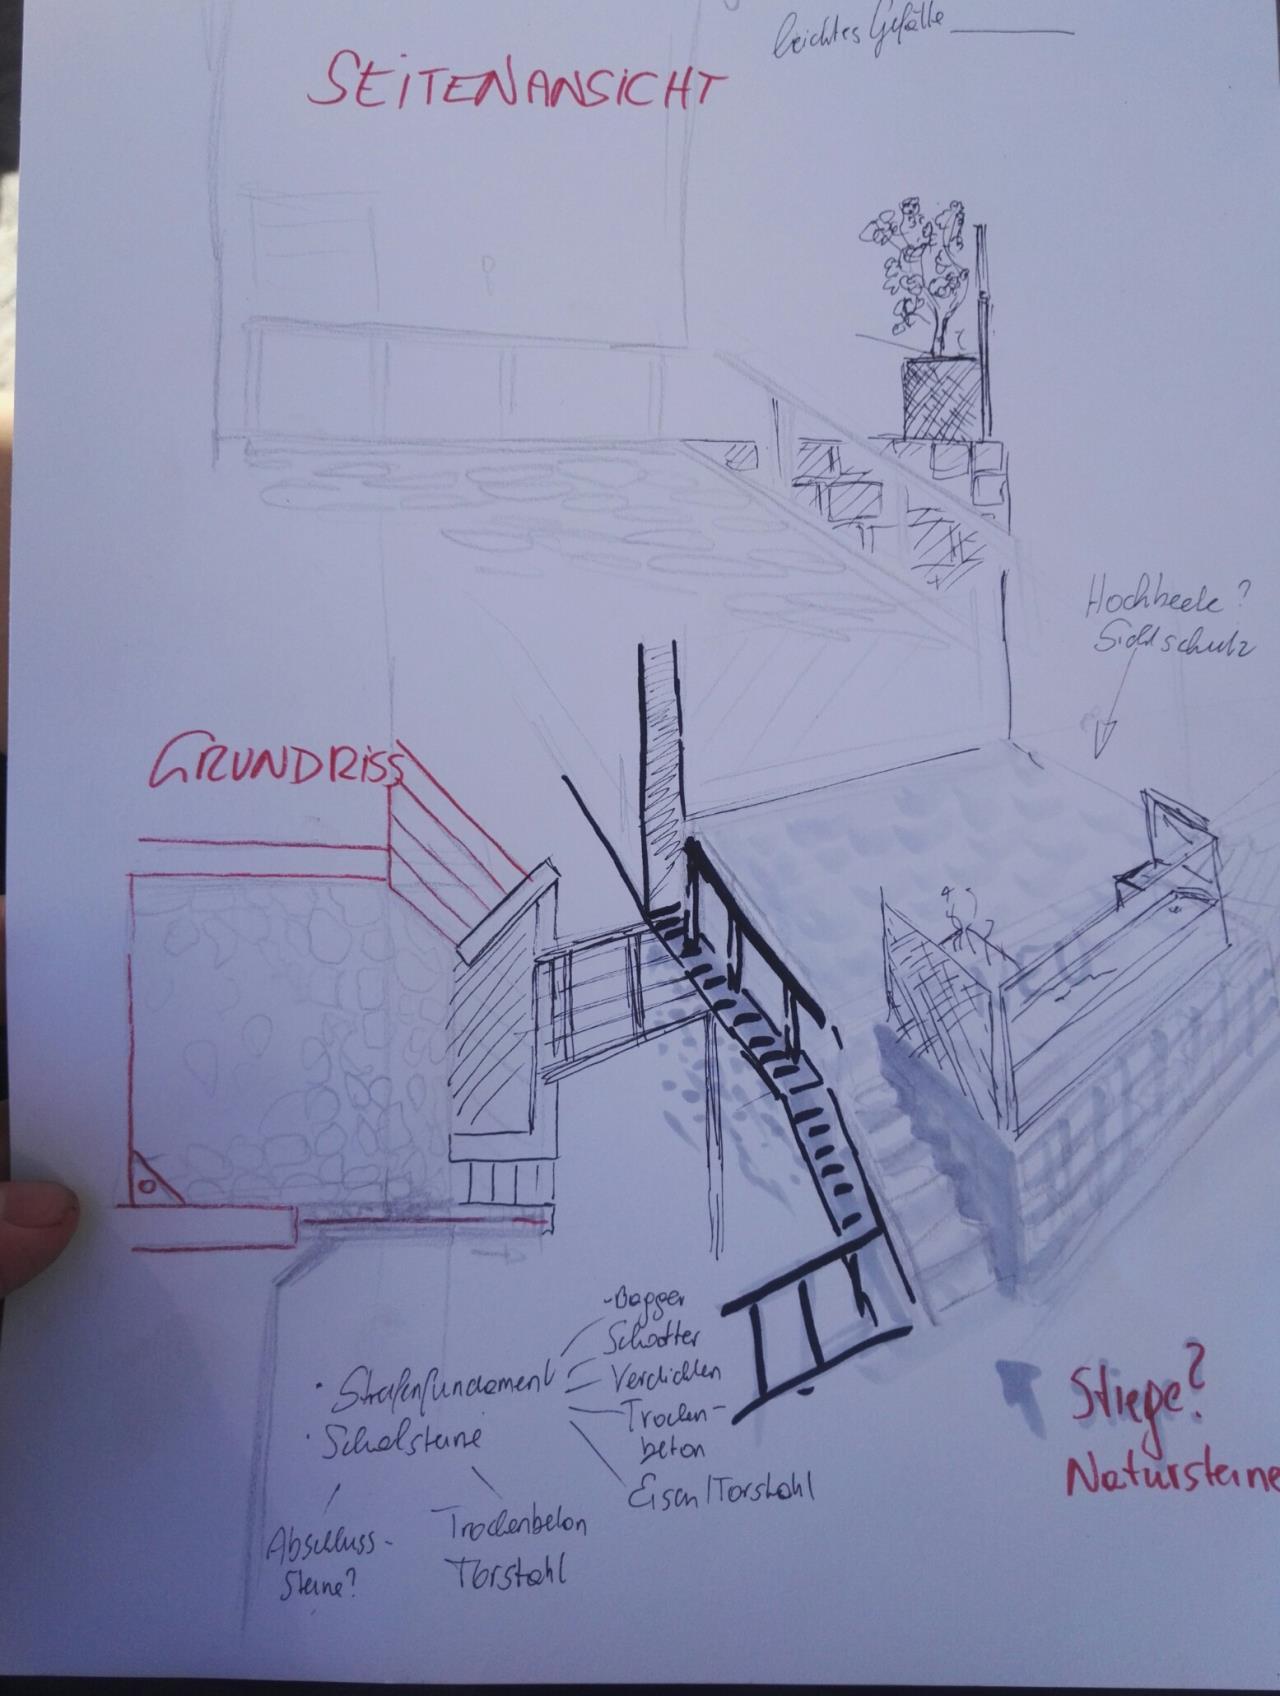 leichtes Gefälle
SEITENANSICHT
Hochbeete?
Sichtschutz
GRUNDRISS
-Bagger
Schotter
• Streifenfundament
Verdichten
Trocken-
beton
• Schalsteine
Eisen/Torstahl
Stiege?
Natursteine
Abschluss-
Steine?
Trockenbeton
Torstahl